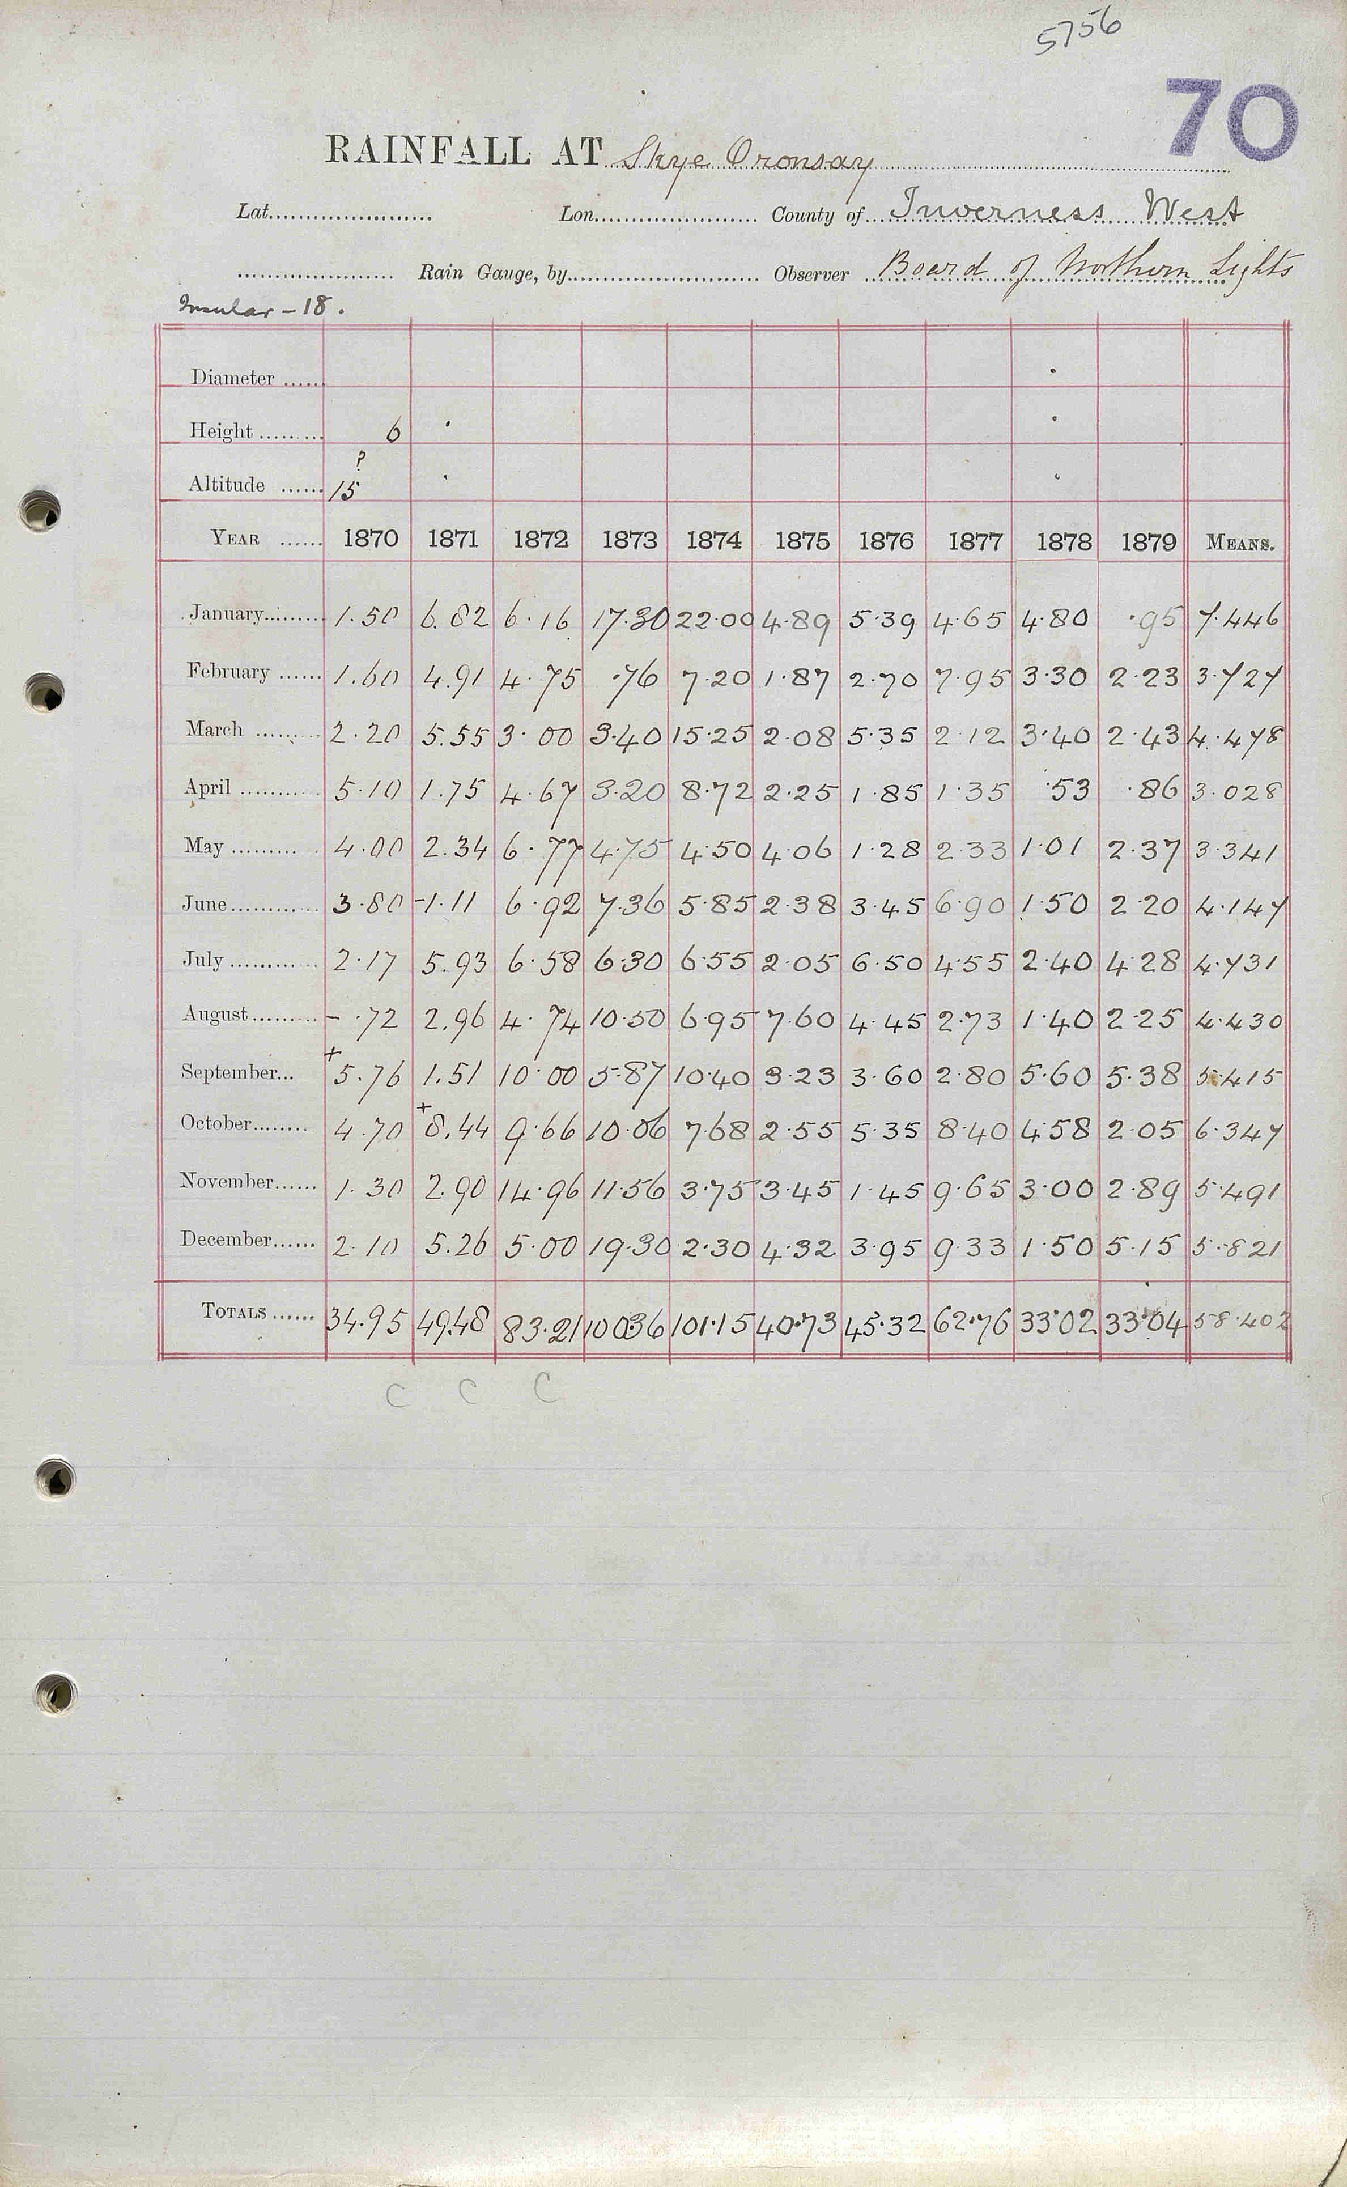 5756
70
RAINFALL AT Skye Oronsay
Lat. Lon. County of Inverness West
Rain Gauge, by Observer Board of Northern Lights
Insular - 18.
Diameter
Height 6
?
Altitude 15
YEAR 1870 1871 1872 1873 1874 1875 1876 1877 1878 1879 MEANS.
January 1.50 6.82 6.16 17.30 22.00 4.89 5.39 4.65 4.80 .95 7.446
February 1.60 4.91 4.75 .76 7.20 1.87 2.70 7.95 3.30 2.23 3.727
March 2.20 5.55 3.00 3.40 15.25 2.08 5.35 2.12 3.40 2.43 4.478
April 5.10 1.75 4.67 3.20 8.72 2.25 1.85 1.35 .53 .86 3.028
May 4.00 2.34 6.77 4.75 4.50 4.06 1.28 2.33 1.01 2.37 3.341
June 3.80 -1.11 6.92 7.36 5.85 2.38 3.45 6.90 1.50 2.20 4.147
July 2.17 5.93 6.58 6.30 6.55 2.05 6.50 4.55 2.40 4.28 4.731
August - .72 2.96 4.74 10.50 6.95 7.60 4.45 2.73 1.40 2.25 4.430
September... +5.76 1.51 10.00 5.87 10.40 3.23 3.60 2.80 5.60 5.38 5.415
October 4.70 +8.44 9.66 10.06 7.68 2.55 5.35 8.40 4.58 2.05 6.347
November 1.30 2.90 14.96 11.56 3.75 3.45 1.45 9.65 3.00 2.89 5.491
December 2.10 5.26 5.00 19.30 2.30 4.32 3.95 9.33 1.50 5.15 5.821
TOTALS 34.95 49.48 83.21 100.36 101.15 40.73 45.32 62.76 33.02 33.04 58.402
C C C